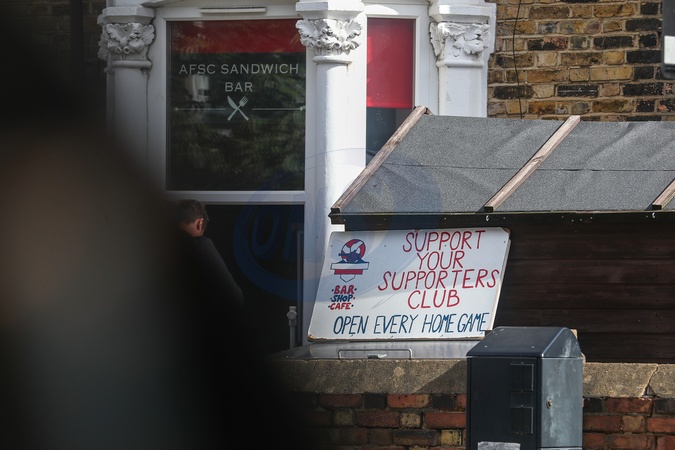 AFSC SANDWICH
BAR
SUPPORT
YOUR
SUPPORTERS
CLUB
·BAR·
·SHOP·
CAFE·
OPEN EVERY HOME GAME